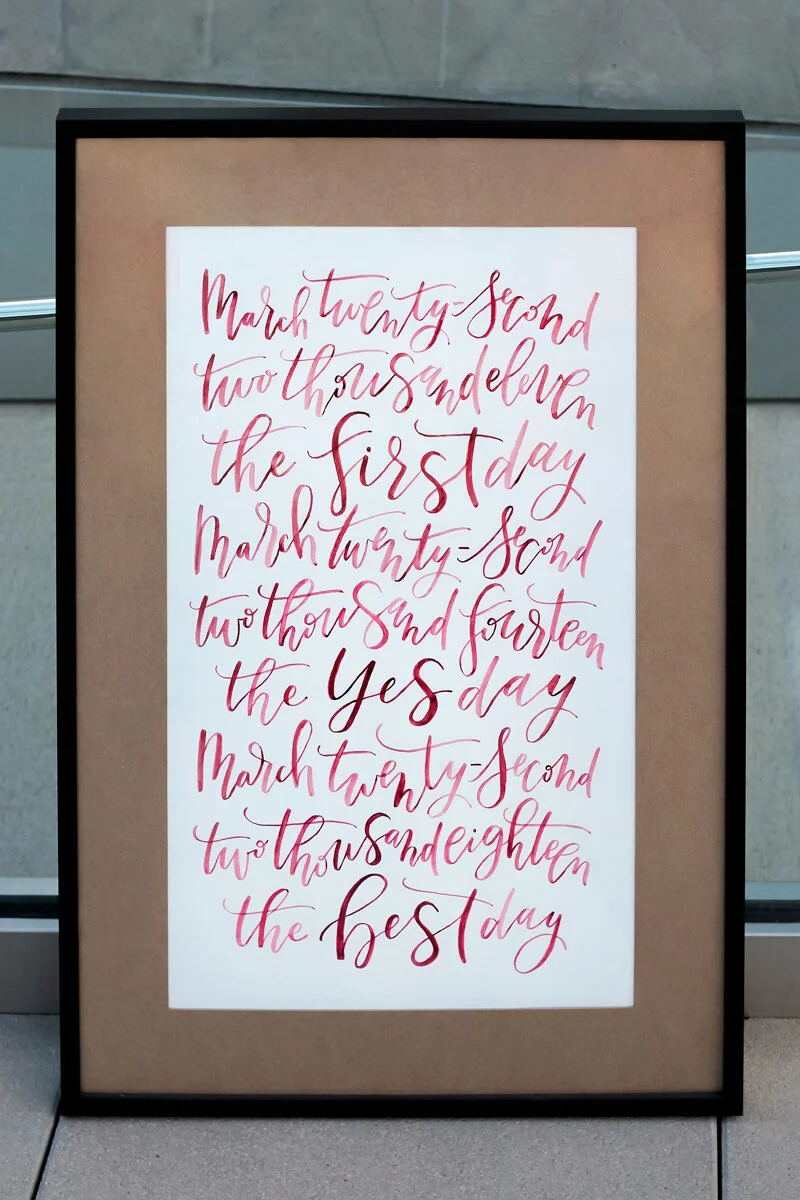 March twenty-second
two thousand eleven
the first day
March twenty-second
two thousand fourteen
the yes day
March twenty-second
two thousand eighteen
the best day